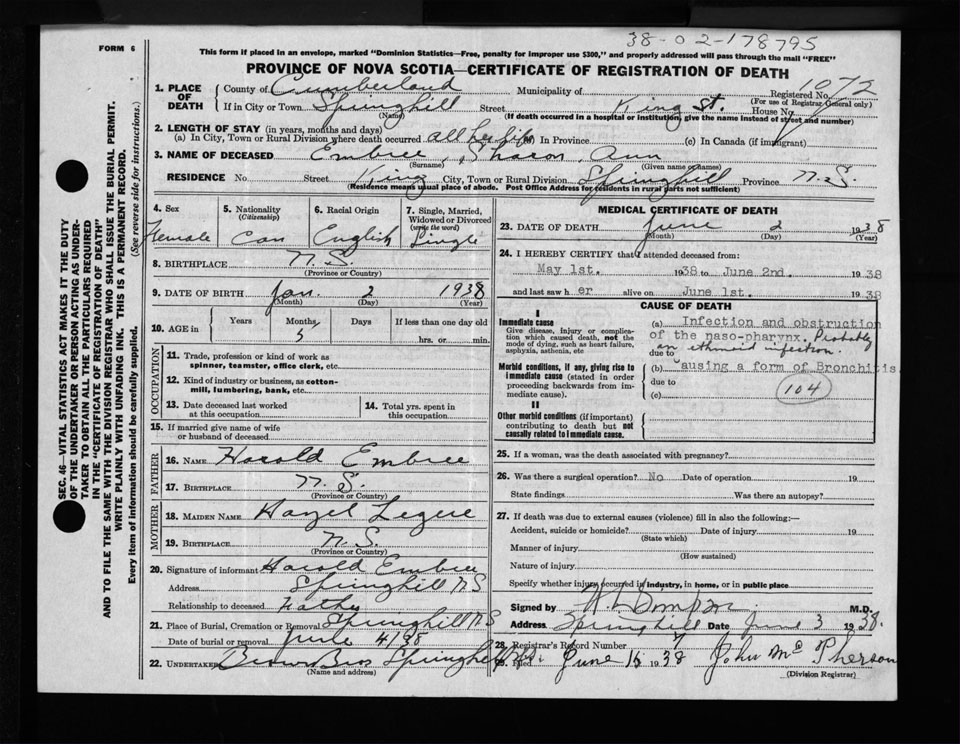 38-02-178795
FORM 6
This form if placed in an envelope, marked "Dominion Statistics—Free, penalty for improper use $300," and properly addressed will pass through the mail "FREE"
PROVINCE OF NOVA SCOTIA—CERTIFICATE OF REGISTRATION OF DEATH
1. PLACE OF DEATH County of Cumberland Municipality of Registered No. 1072
(For use of Registrar General only)
If in City or Town Springhill Street King St. House No.
(Name) (If death occurred in a hospital or institution, give the name instead of street and number)
2. LENGTH OF STAY (in years, months and days)
(a) In City, Town or Rural Division where death occurred all her life (b) In Province (c) In Canada (if immigrant)
3. NAME OF DECEASED Embree, Sharon Ann
(Surname) (Given name or names)
RESIDENCE No. Street King City, Town or Rural Division Springhill Province N.S
(Residence means usual place of abode. Post Office Address for residents in rural parts not sufficient)
4. Sex Female
5. Nationality (Citizenship) Can
6. Racial Origin English
7. Single, Married, Widowed or Divorced (write the word) Single
8. BIRTHPLACE N.S.
(Province or Country)
9. DATE OF BIRTH Jan. 2 1938
(Month) (Day) (Year)
10. AGE in Years Months 5 Days If less than one day old
hrs. or min.
OCCUPATION
11. Trade, profession or kind of work as spinner, teamster, office clerk, etc.
12. Kind of industry or business, as cotton-mill, lumbering, bank, etc.
13. Date deceased last worked at this occupation
14. Total yrs. spent in this occupation
15. If married give name of wife or husband of deceased
FATHER
16. NAME Harold Embree
17. BIRTHPLACE N.S.
(Province or Country)
MOTHER
18. MAIDEN NAME Hazel Legere
19. BIRTHPLACE N.S.
(Province or Country)
20. Signature of informant Harold Embree
Address Springhill N S
Relationship to deceased Father
21. Place of Burial, Cremation or Removal Springhill N S
Date of burial or removal June 4/38
22. UNDERTAKER Brown Bros Springhill N.S.
(Name and address)
MEDICAL CERTIFICATE OF DEATH
23. DATE OF DEATH June 2 1938
(Month) (Day) (Year)
24. I HEREBY CERTIFY that I attended deceased from:
May 1st. 1938 to June 2nd. 1938
and last saw h er alive on June 1st. 1938
CAUSE OF DEATH
I
Immediate cause
Give disease, injury or complication which caused death, not the mode of dying, such as heart failure, asphyxia, asthenia, etc
(a) Infection and obstruction
of the naso-pharynx. Probably
an ethmoid infection.
due to
Morbid conditions, if any, giving rise to immediate cause (stated in order proceeding backwards from immediate cause).
(b) Causing a form of Bronchitis.
due to
(c)
104
II
Other morbid conditions (if important) contributing to death but not causally related to immediate cause.
25. If a woman, was the death associated with pregnancy?
26. Was there a surgical operation? No Date of operation 19
State findings Was there an autopsy?
27. If death was due to external causes (violence) fill in also the following:—
Accident, suicide or homicide? Date of injury 19
(State which)
Manner of injury
(How sustained)
Nature of injury
Specify whether injury occurred in industry, in home, or in public place
Signed by M.D.
Address Springhill Date June 3 1938.
28. Registrar's Record Number 7
29. Filed June 15 1938 John McPherson
(Division Registrar)
SEC. 46—VITAL STATISTICS ACT MAKES IT THE DUTY
OF THE UNDERTAKER OR PERSON ACTING AS UNDER-
TAKER TO OBTAIN ALL THE PARTICULARS REQUIRED
IN THE "CERTIFICATE OF REGISTRATION OF DEATH"
AND TO FILE THE SAME WITH THE DIVISION REGISTRAR WHO SHALL ISSUE THE BURIAL PERMIT.
WRITE PLAINLY WITH UNFADING INK. THIS IS A PERMANENT RECORD.
Every item of information should be carefully supplied. (See reverse side for instructions.)